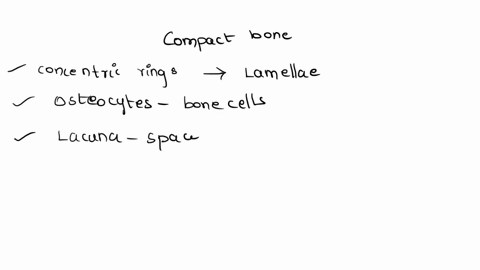 Compact bone
✓ concentric rings → Lamellae
✓ Osteocytes - bone cells
✓ Lacuna - space